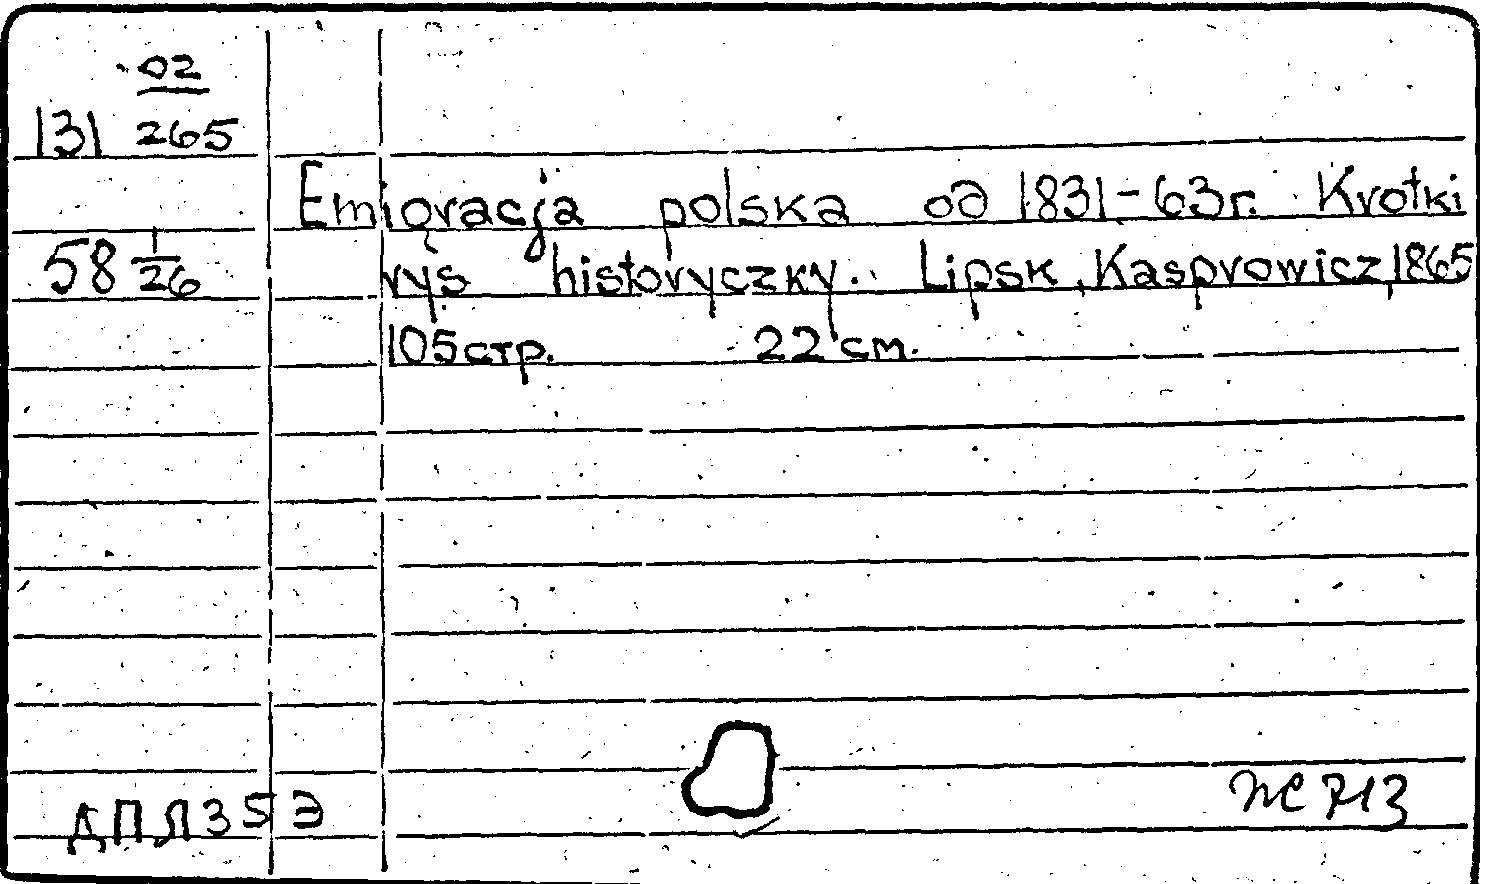 02
131 265
Emigracja polska od 1831-63r. Krotki
58 1/26
rys historyczky. Lipsk, Kasprowicz, 1865
105 стр. 22 см.
ДПЛ 35 Э